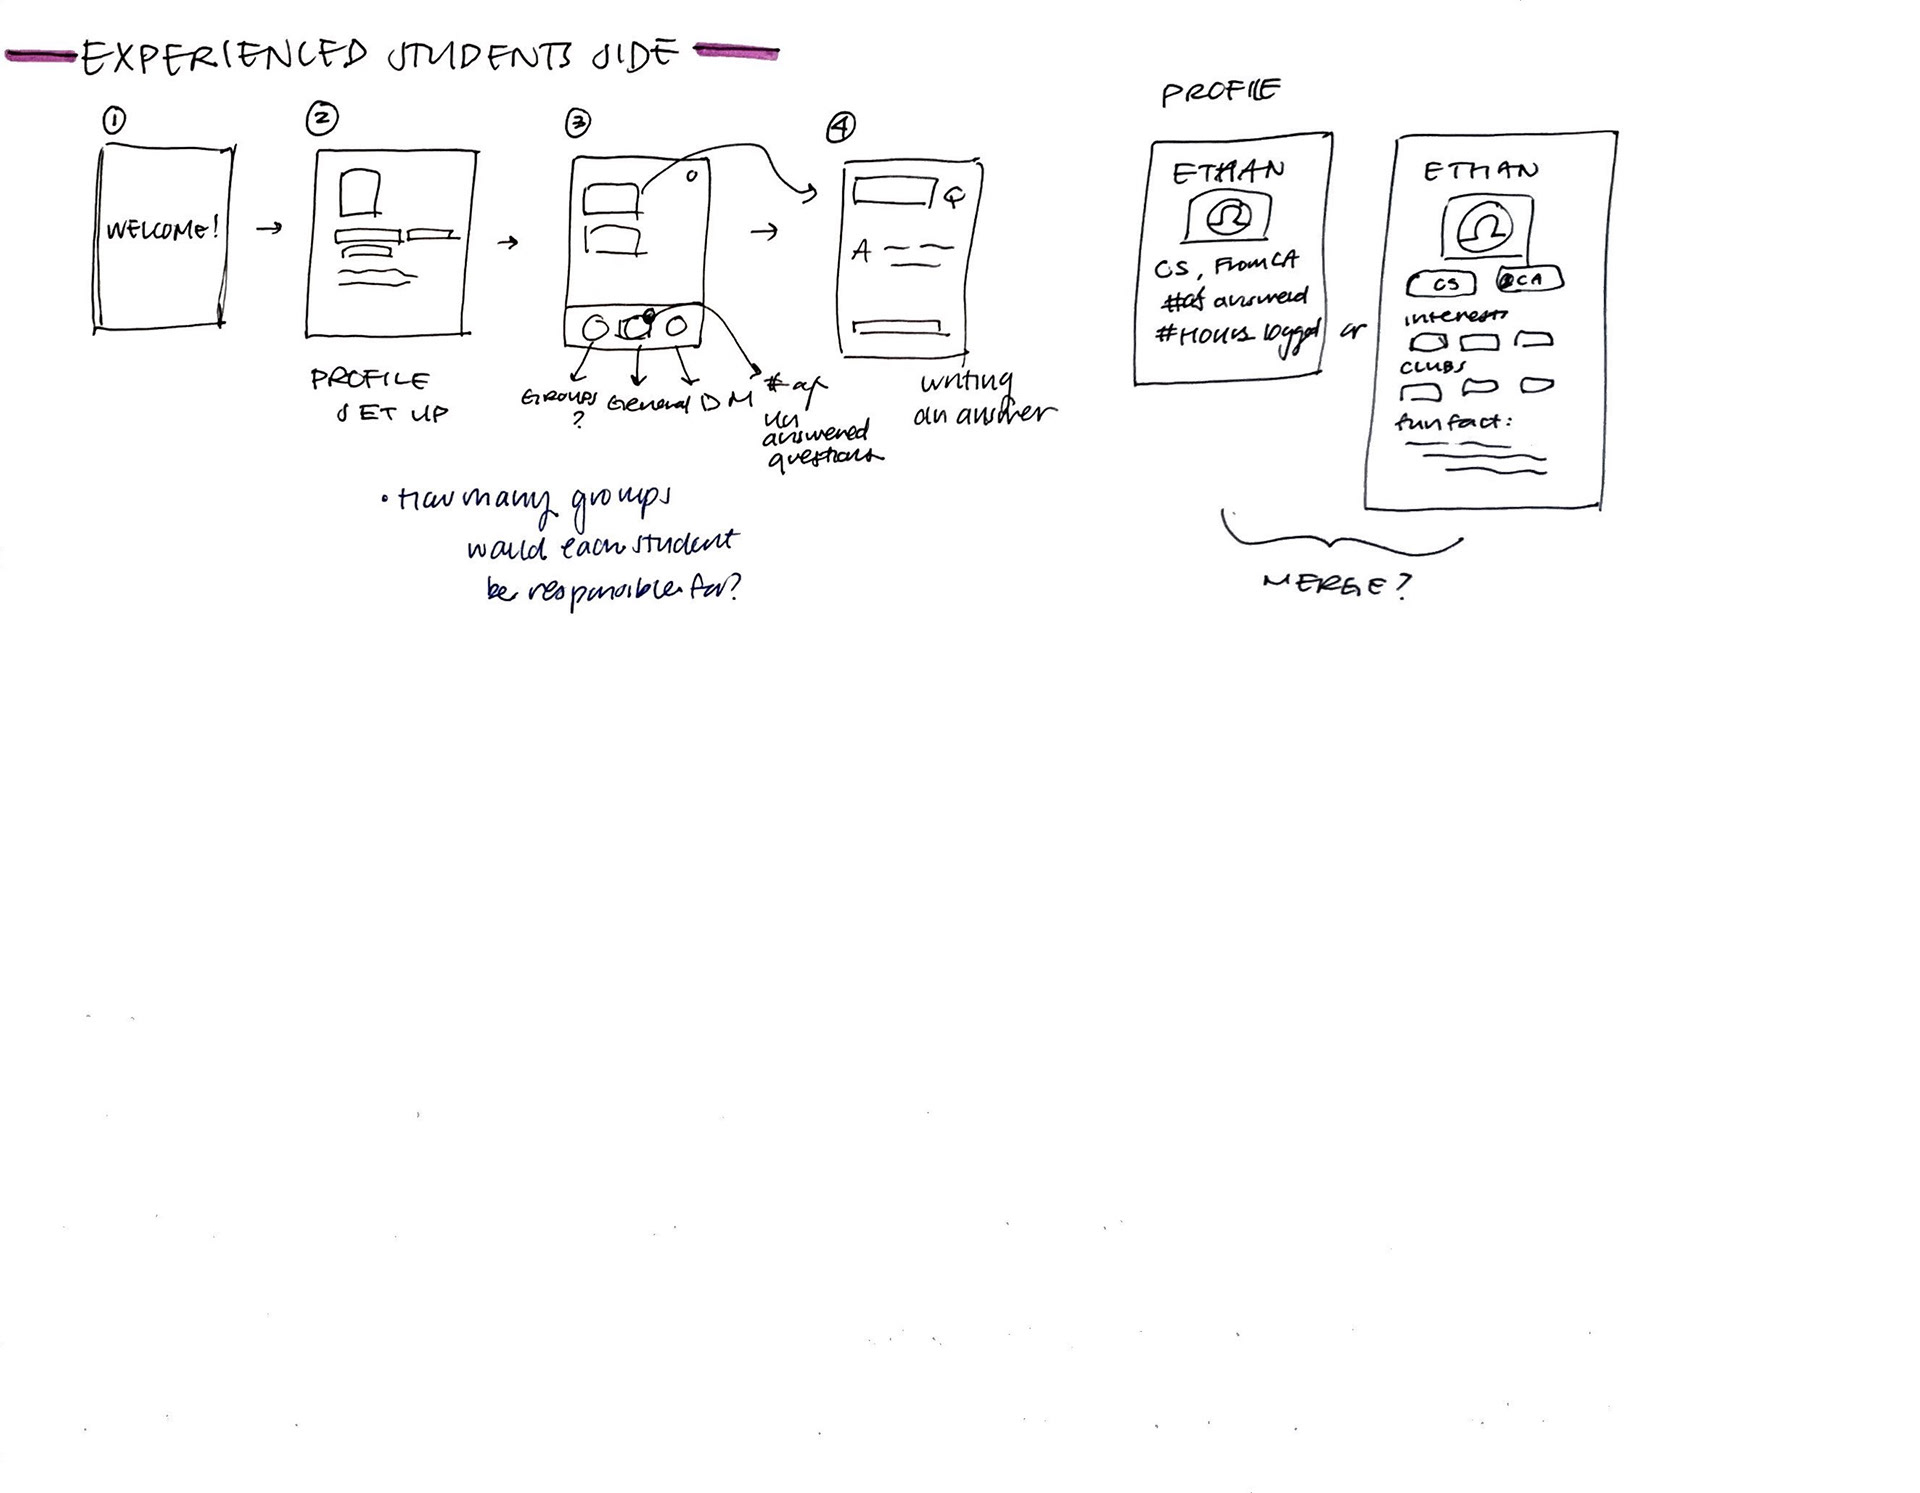 EXPERIENCED STUDENTS SIDE
1
WELCOME!
2
PROFILE
SET UP
3
GROUPS
?
General
DM
# of
un
answered
questions
4
Q
A
writing
an answer
• How many groups
would each student
be responsible for?
PROFILE
ETHAN
CS, From CA
# of answered
# Hours logged
or
ETHAN
CS
CA
interests
CLUBS
fun fact:
MERGE?